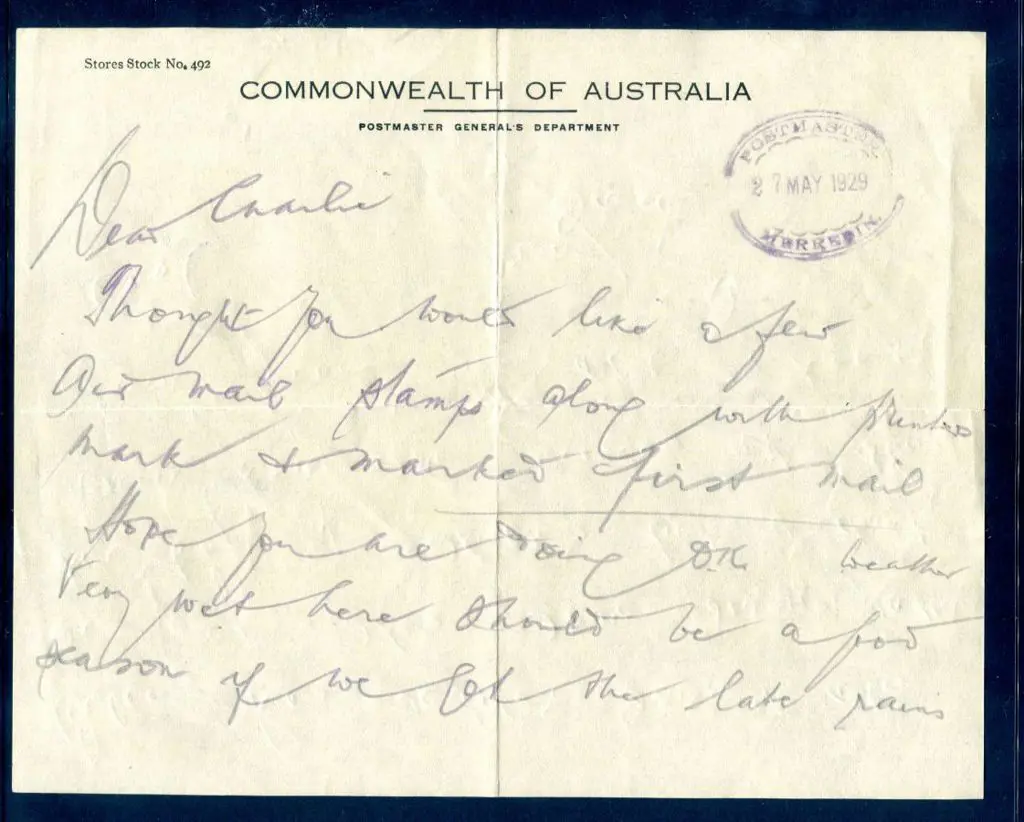 Stores Stock No. 492
COMMONWEALTH OF AUSTRALIA
POSTMASTER GENERAL'S DEPARTMENT
POSTMASTER
27 MAY 1929
MERREDIN.
Dear Charlie
Thought you would like a few
Air mail stamps along with printed
mark & marked first mail
Hope you are doing O.K. weather
very wet here should be a good
season if we get the late rains